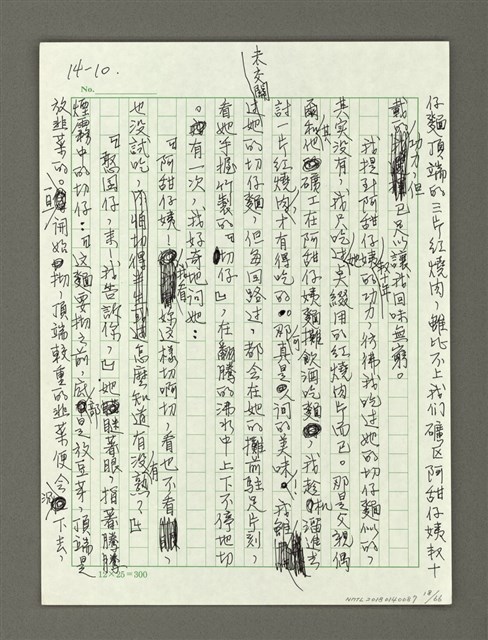 14-10.
No.
仔麵頂端的三片紅燒肉，雖比不上我們礦區阿甜仔姨数十
戴的功力，但已足以讓我回味無窮。
我提到阿甜仔姨她数十年的功力，彷彿我吃过她的切仔麵似的，
其实没有，我只吃过点綴用的紅燒肉片而已。那是父親偶
爾和他其礦工在阿甜仔姨麵攤飲酒吃麵，我趁机溜進去
討一片紅燒肉，才有得吃的。那真是人间的美味！我
未交關过她的切仔麵，但每回路过，都会在她的攤前駐足片刻，
看她手握竹製的『切仔』，在翻騰的沸水中上下不停地切
。有一次，我好奇地问她：
『阿甜仔姨！我看妳这樣切啊切，看也不看，
也没試吃，怎麼知道有没有熟？』
『憨囝仔，来！我告訴你，』她瞇著眼，指著騰騰
煙霧中的切仔：『这麵要抝之前，底部是放豆芽，頂端是
放韭菜的。一旦開始抝，頂端較重的韭菜便会沉下去，
12×25=300
NMTL20180040087
18/66